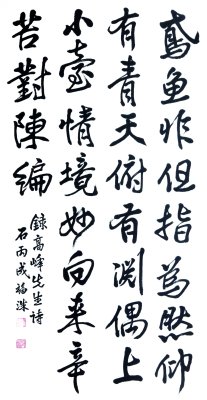 鳶魚非但指為然仰
有青天俯有淵偶上
小臺情境妙向來辛
苦對陳編
錄高峰先生詩
石丙成福洙